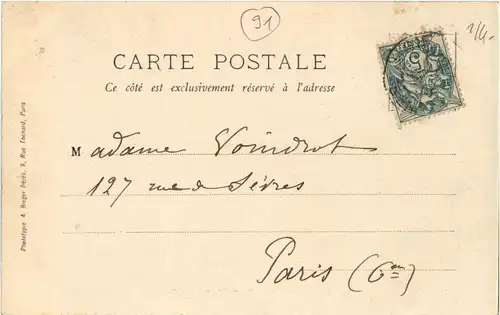 91
2/4.
CARTE POSTALE
Ce côté est exclusivement réservé à l'adresse
Madame Voindrot
127 rue de Sèvres
Paris (6em)
Phototypie A. Breger Frères, 9, Rue Thénard, Paris